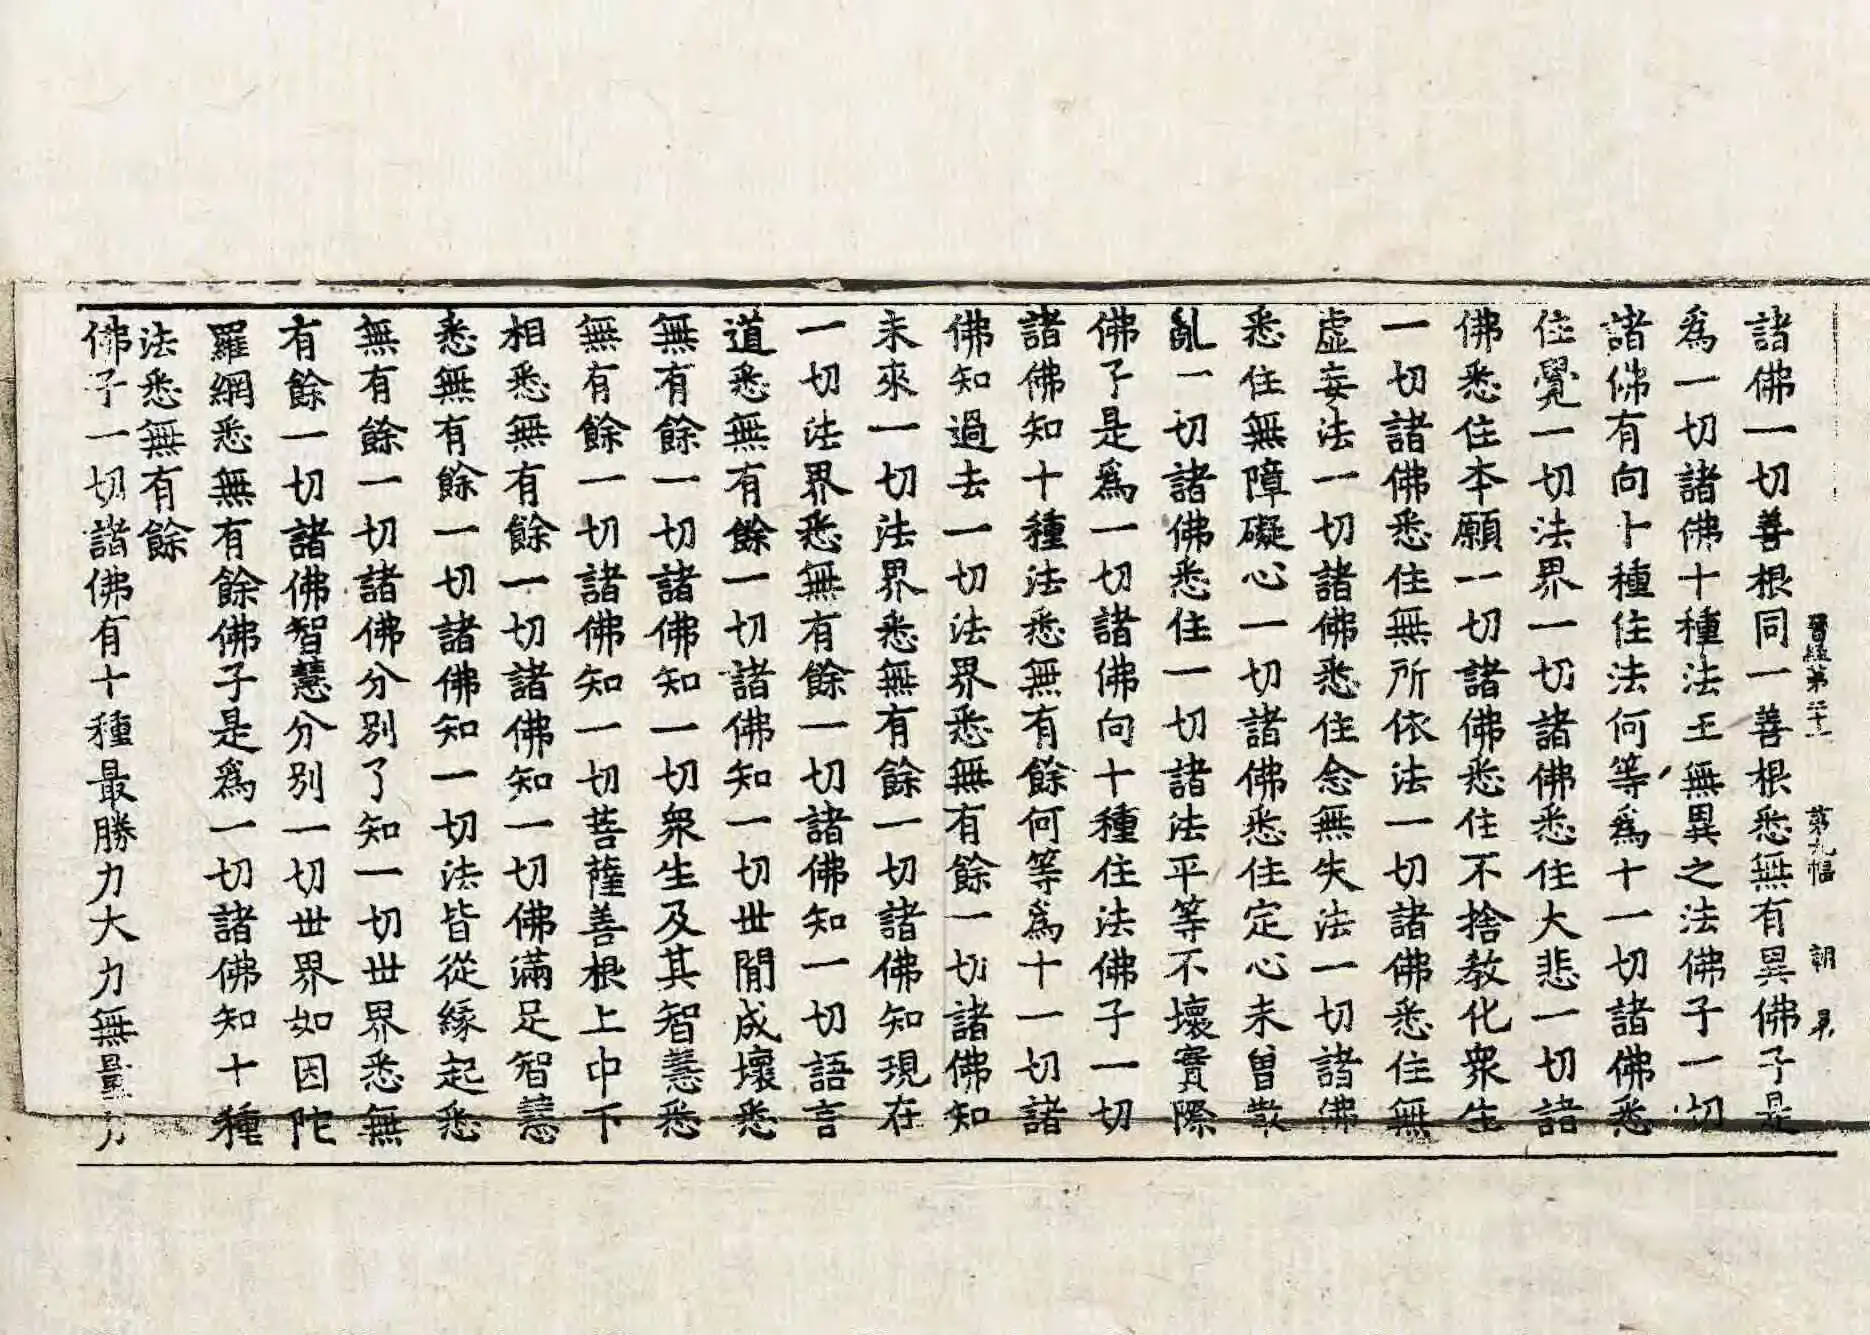 晉經第三十一　第九幅　朝　另
諸佛一切善根同一善根悉無有異佛子是
爲一切諸佛十種法王無異之法佛子一切
諸佛有向十種住法何等爲十一切諸佛悉
住覺一切法界一切諸佛悉住大悲一切諸
佛悉住本願一切諸佛悉住不捨教化衆生
一切諸佛悉住無所依法一切諸佛悉住無
虛妄法一切諸佛悉住念無失法一切諸佛
悉住無障礙心一切諸佛悉住定心未曽散
亂一切諸佛悉住一切諸法平等不壞實際
佛子是爲一切諸佛向十種住法佛子一切
諸佛知十種法悉無有餘何等爲十一切諸
佛知過去一切法界悉無有餘一切諸佛知
未來一切法界悉無有餘一切諸佛知現在
一切法界悉無有餘一切諸佛知一切語言
道悉無有餘一切諸佛知一切世閒成壞悉
無有餘一切諸佛知一切衆生及其智慧悉
無有餘一切諸佛知一切菩薩善根上中下
相悉無有餘一切諸佛知一切佛滿足智慧
悉無有餘一切諸佛知一切法皆從緣起悉
無有餘一切諸佛分別了知一切世界悉無
有餘一切諸佛智慧分別一切世界如因陀
羅網悉無有餘佛子是爲一切諸佛知十種
法悉無有餘
佛子一切諸佛有十種最勝力大力無量力